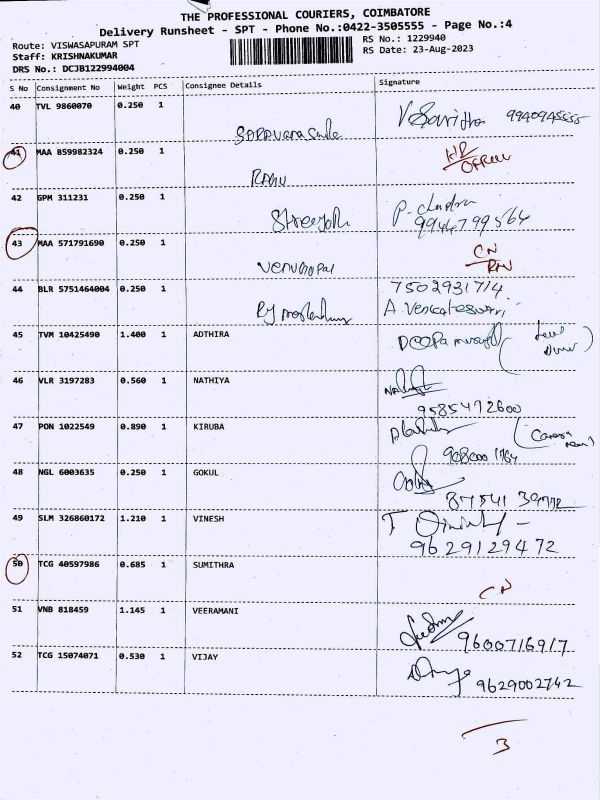 THE PROFESSIONAL COURIERS, COIMBATORE
Delivery Runsheet - SPT - Phone No.:0422-3505555 - Page No.:4
Route: VISWASAPURAM SPT
RS No.: 1229940
Staff: KRISHNAKUMAR
RS Date: 23-Aug-2023
DRS No.: DCJB122994004
S No Consignment No Weight PCS Consignee Details Signature
40 TVL 9860070 0.250 1
9940945555
41 MAA 859982324 0.250 1
RAGU
42 GPM 311231 0.250 1
P. chandra
9944799564
43 MAA 571791690 0.250 1
CN
venugopal
44 BLR 5751464004 0.250 1
7502931714
A. Venkateswari
45 TVM 10425490 1.400 1 ADTHIRA
46 VLR 3197283 0.560 1 NATHIYA
9585472600
47 PON 1022549 0.890 1 KIRUBA
48 NGL 6003635 0.250 1 GOKUL
49 SLM 326860172 1.210 1 VINESH
9629129472
50 TCG 40597986 0.685 1 SUMITHRA
CN
51 VNB 818459 1.145 1 VEERAMANI
9600716917
52 TCG 15074071 0.530 1 VIJAY
9629002742
3